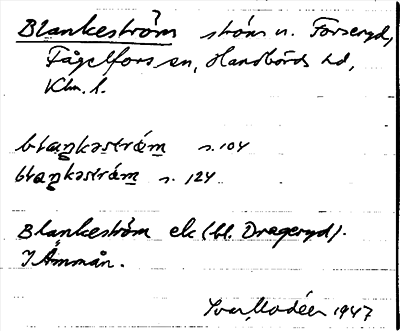 Blankeström ström n. Forseryd,
Fågelfors sn, Handbörds hd,
Klm. l.
blaŋkəstrǿm s. 104
blaŋkəstrǿm s. 124
Blankeström ek (bl. Drageryd).
I Ämmån.
Ivar Modéer 1947